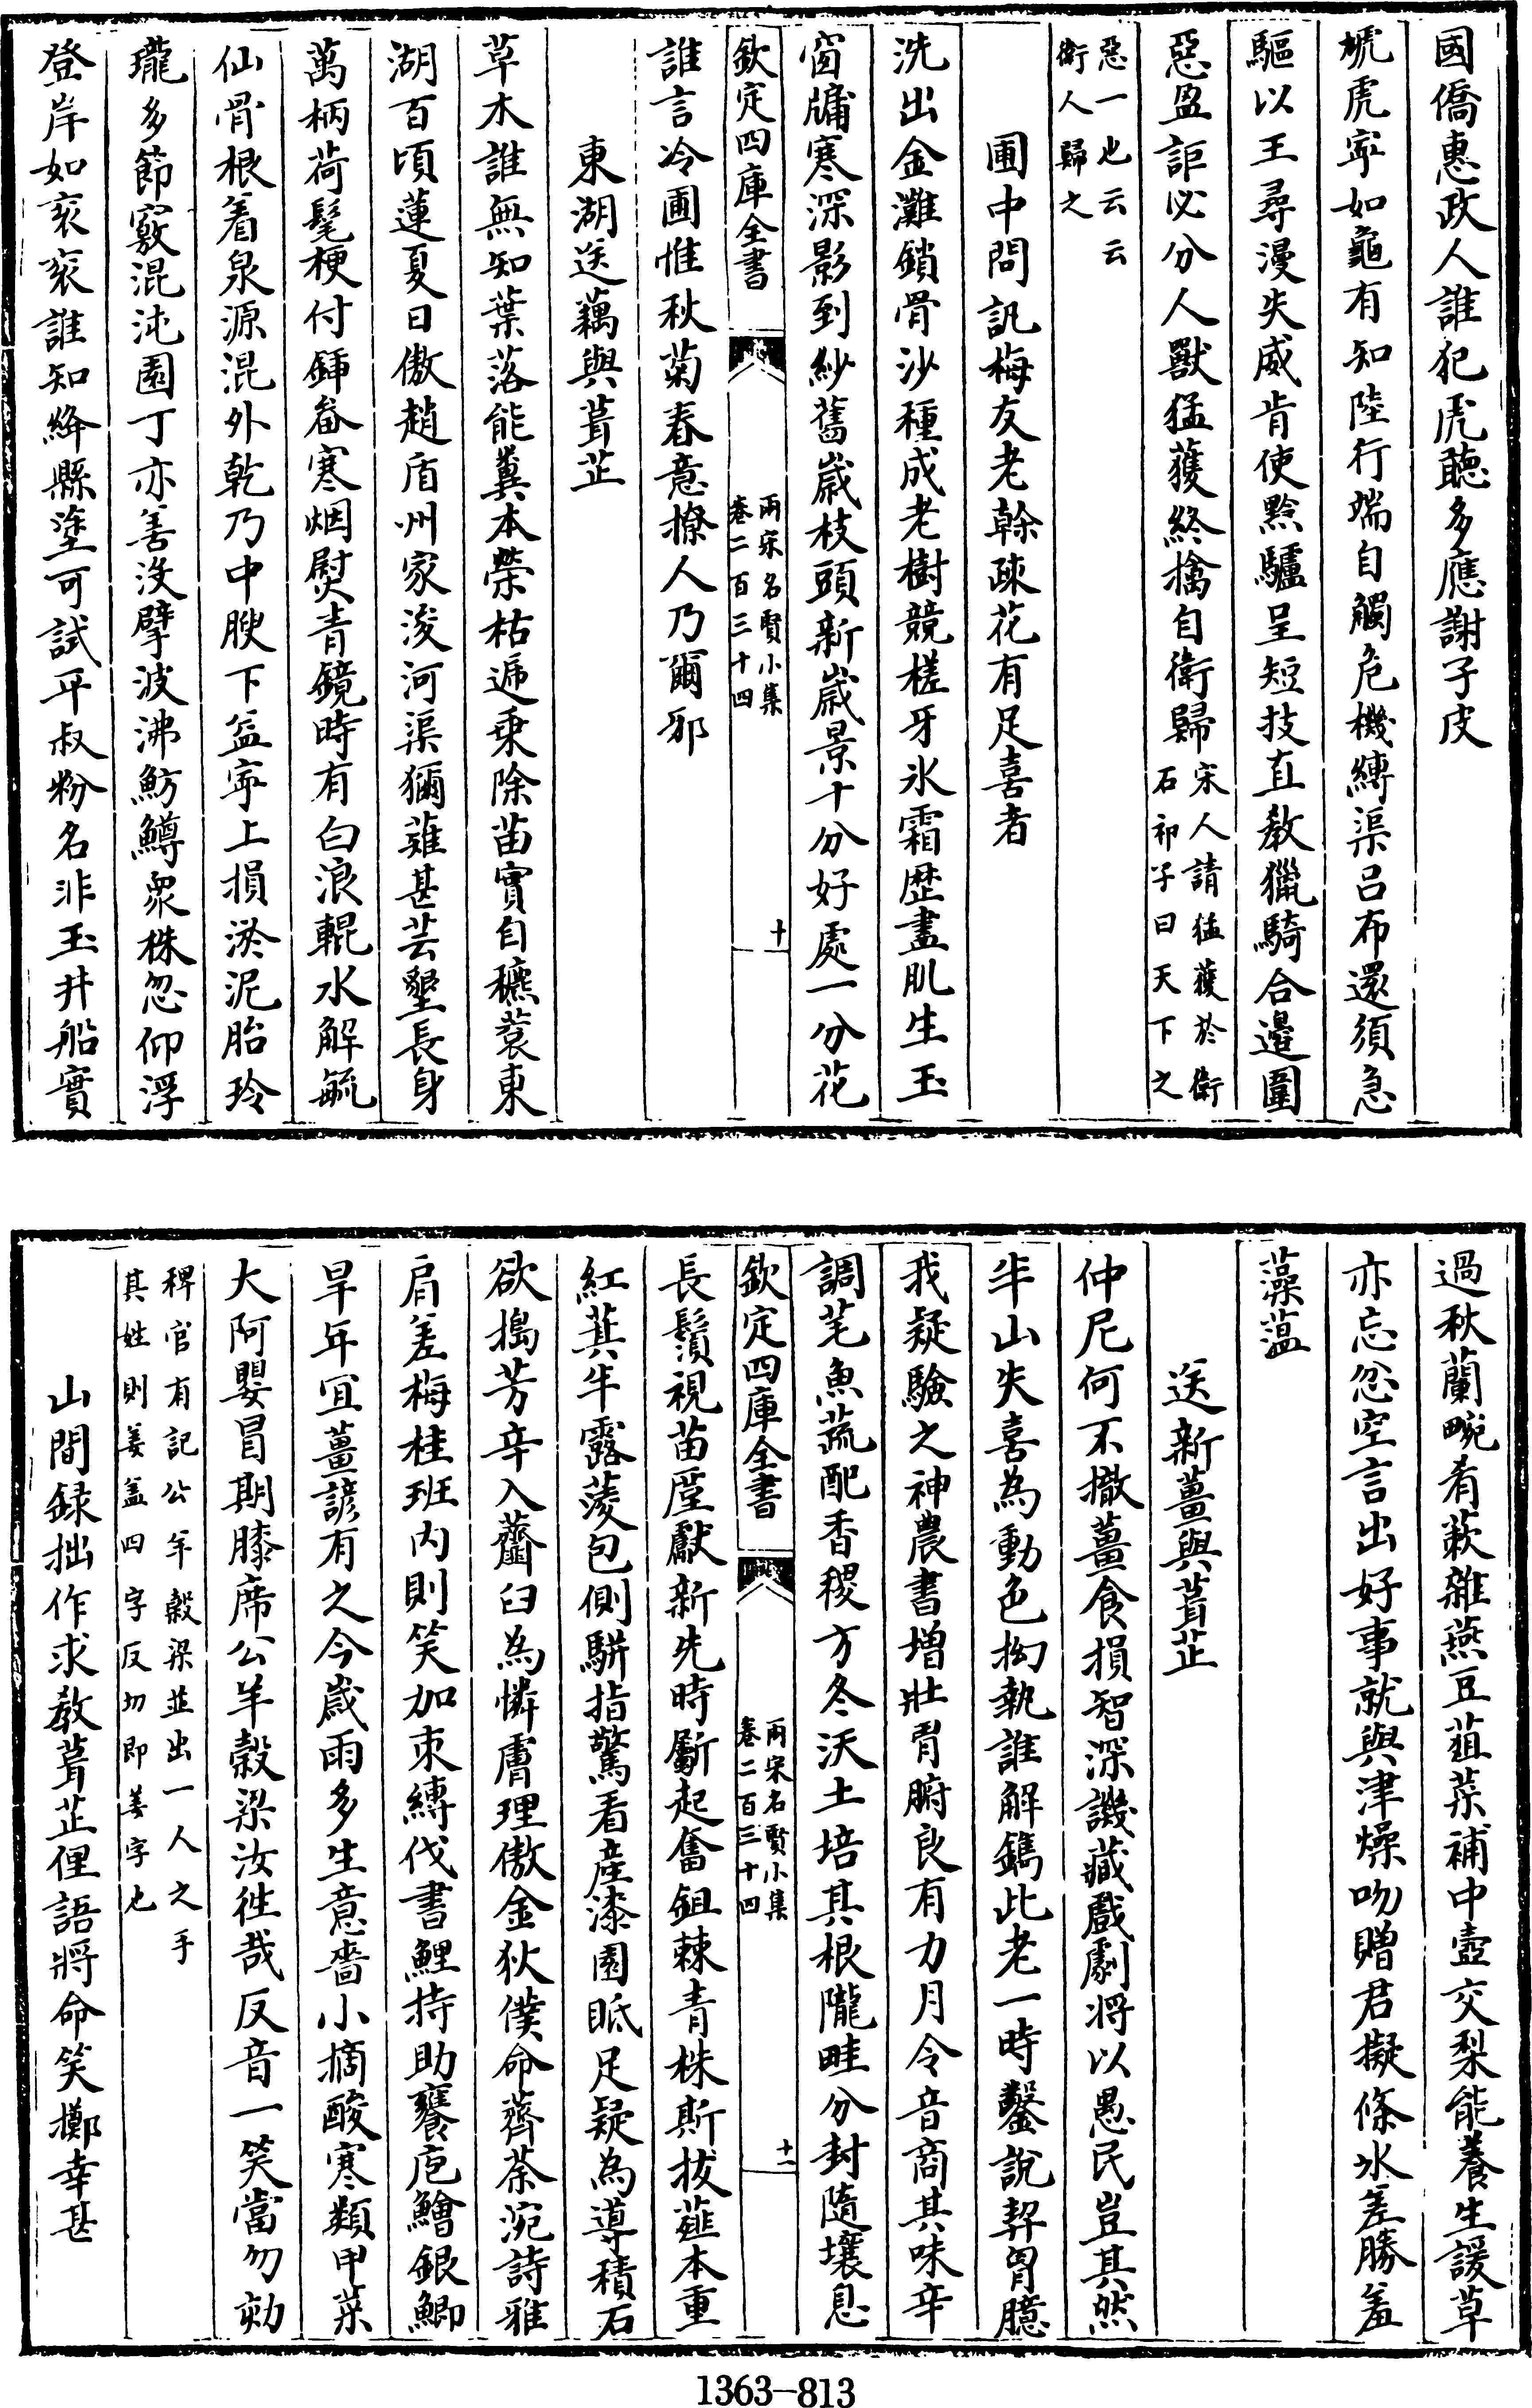 國僑惠政人誰犯虎聽多應謝子皮
虓虎寧如龜有知陸行端自觸危機縛渠呂布還須急
驅以王尋漫失威肯使黔驢呈短技直教獵騎合邉圍
惡盈詎必分人獸猛獲終擒自衛歸宋人請猛獲於衛
石祁子曰天下之
惡一也云云
衛人歸之
圃中問訊梅友老榦疎花有足喜者
洗出金灘鎖骨沙種成老樹競槎牙氷霜歴盡肌生玉
窗牗寒深影到紗舊歲枝頭新歲景十分好處一分花
欽定四庫全書
兩宋名賢小集
卷二百三十四
十
誰言冷圃惟秋菊春意撩人乃爾邪
東湖送藕與葺芷
草木誰無知葉落能糞本榮枯遞乗除苗實自穮蓘東
湖百頃蓮夏日傲趙盾州家浚河渠獮薙甚芸墾長身
萬柄荷髦梗付鍤畚寒烟熨青鏡時有白浪輥水解毓
仙骨根着泉源混外乾乃中腴下益寜上損淤泥胎玲
瓏多節竅混沌園丁亦善沒擘波沸魴鱒衆株忽仰浮
登岸如衮衮誰知絳縣塗可試平叔粉名非玉井船實
過秋蘭畹肴蔌雜燕豆葅菜補中壼交梨能養生諼草
亦忘忿空言出好事就與津燥吻贈君擬條氷差勝羞
藻薀
送新薑與葺芷
仲尼何不撤薑食損智深譏藏戲劇將以愚民豈其然
半山失喜為動色拗執誰解鐫此老一時鑿說契胷臆
我疑驗之神農書増壯胃腑良有力月令音商其味辛
調芼魚蔬配香稷方冬沃土培其根隴畦分封隨壤息
欽定四庫全書
兩宋名賢小集
卷二百三十四
十一
長鬚視苗廑獻新先時斸起奮鉏棘青株斯拔薤本重
紅萁半露蔆包側駢指驚看産漆園眡足疑為導積石
欲搗芳辛入虀臼為憐膚理傲金狄僕命薺荼涴詩雅
肩差梅桂班内則笑加朿縛伐書鯉持助饔庖鱠銀鯽
旱年宜薑諺有之今歲雨多生意嗇小摘酸寒類甲菜
大阿嬰冒期膝席公羊糓梁汝徃哉反音一笑當勿勑
稗官有記公羊糓梁並出一人之手
其姓則姜盖四字反切即姜字也
山間録拙作求教葺芷俚語將命笑擲幸甚
1363—813